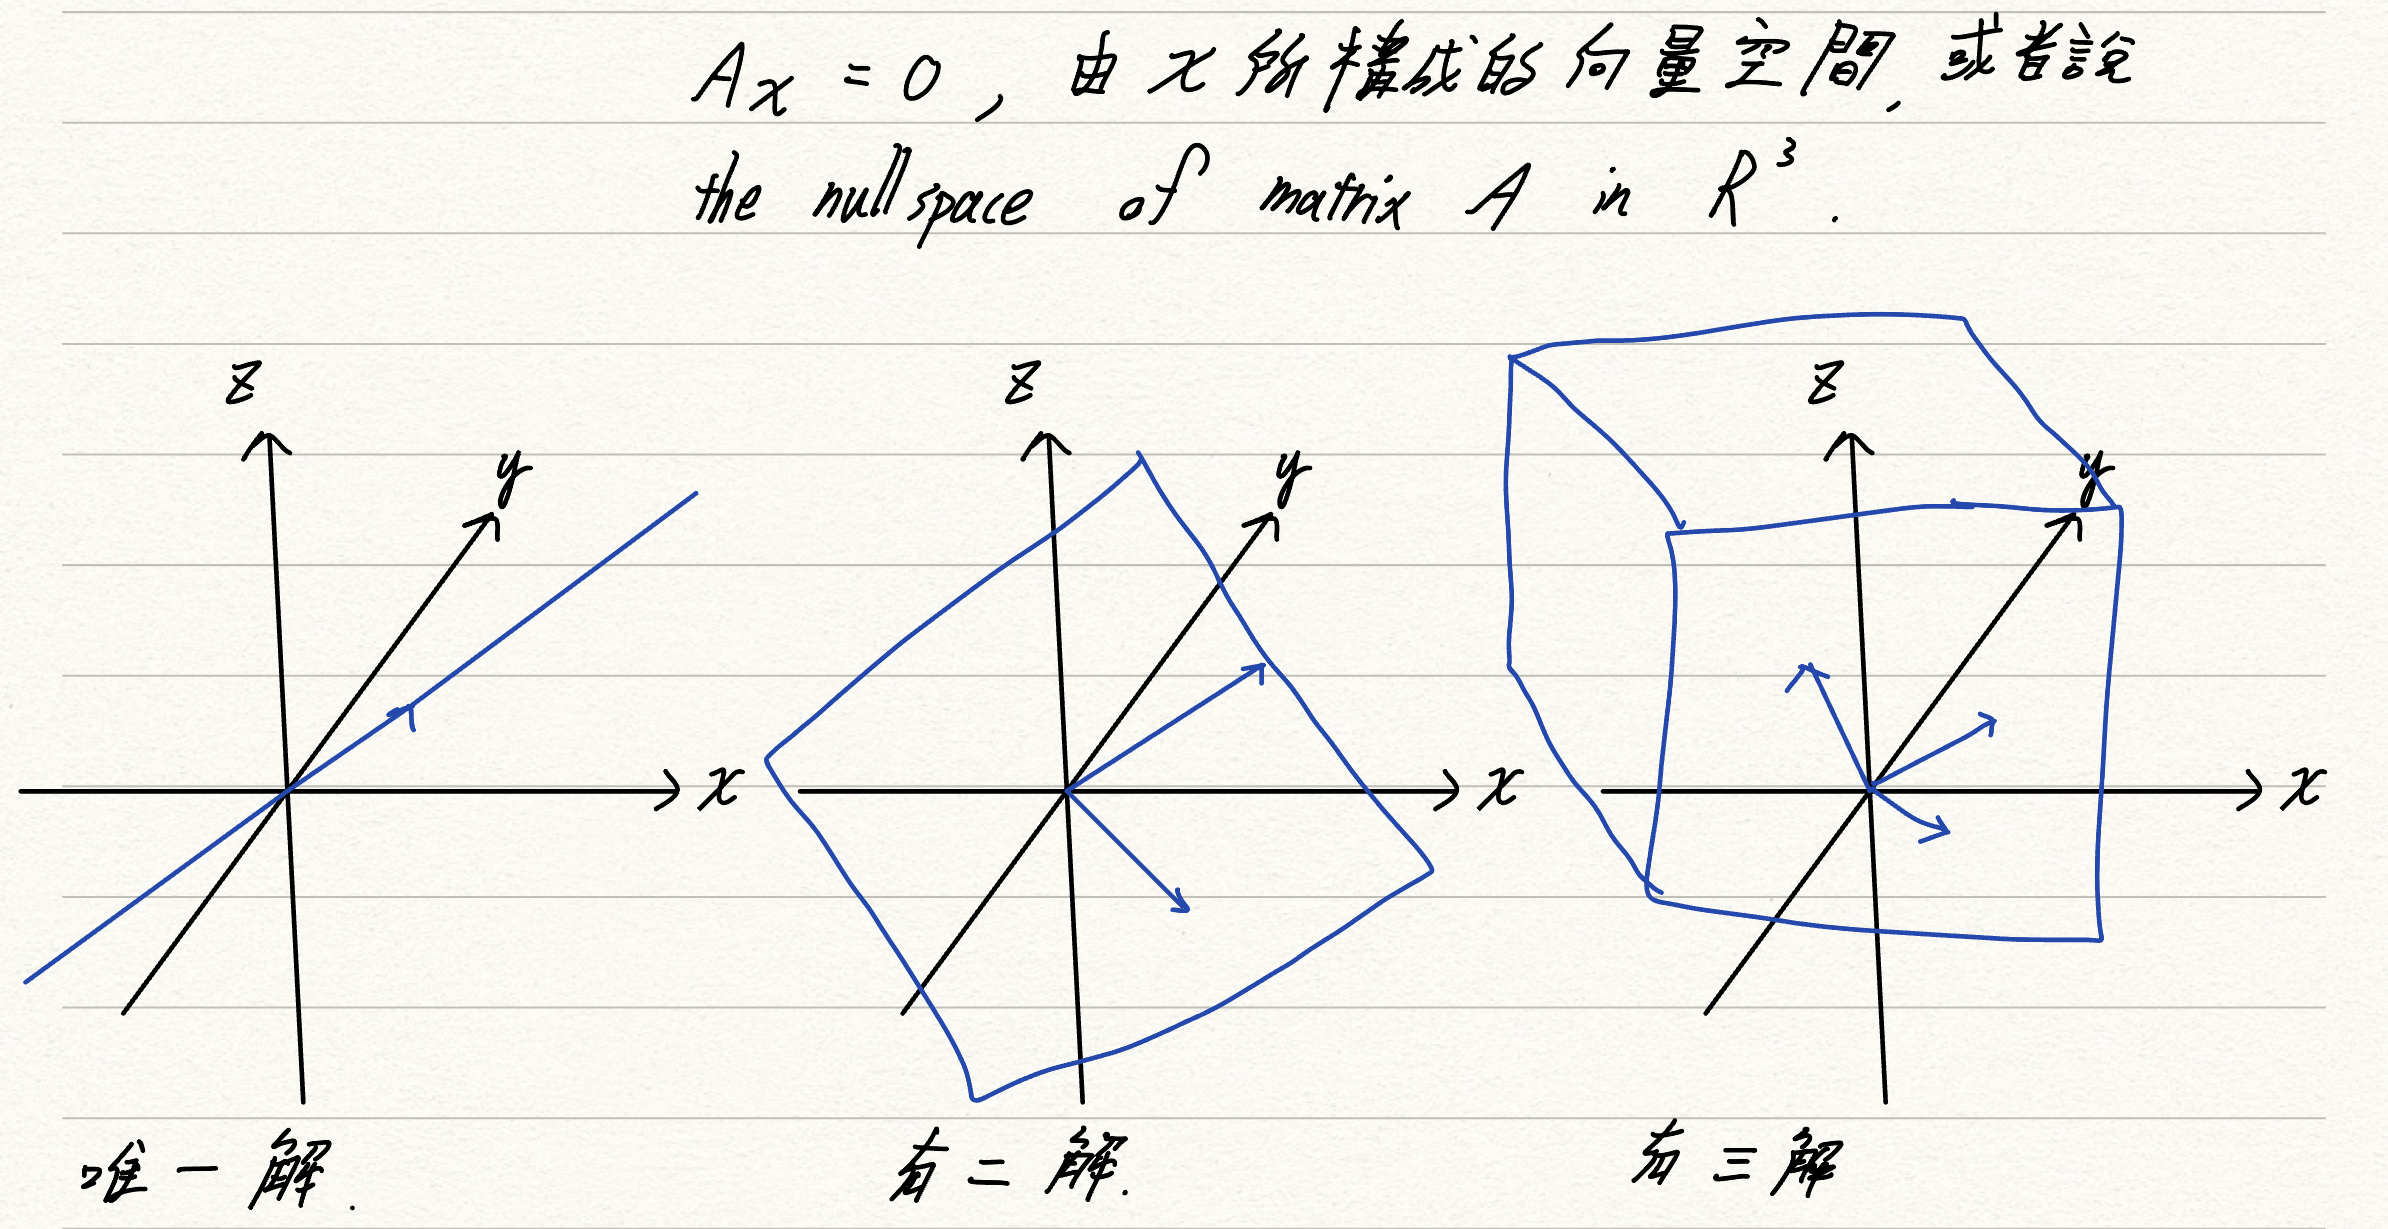 Ax = 0, 由 x 所構成的向量空間, 或者說
the nullspace of matrix A in R³.
z
y
x
z
y
x
z
y
x
唯一解.
有二解.
有三解